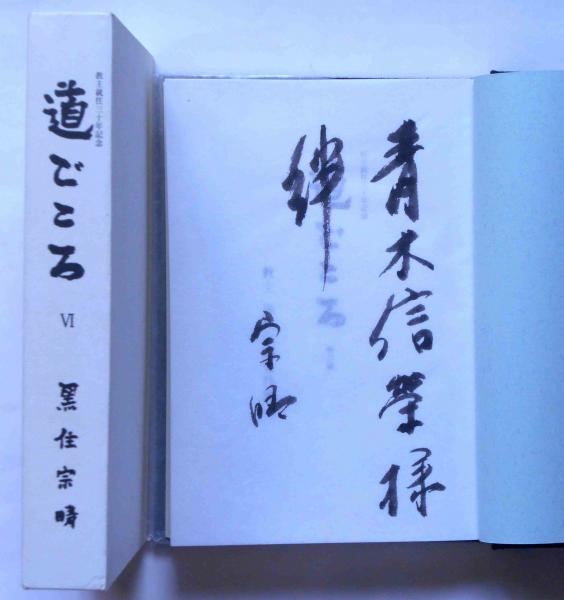 教主就任三十年記念
道ごころ
Ⅵ
黒住宗晴
青木信榮様
絆
宗晴